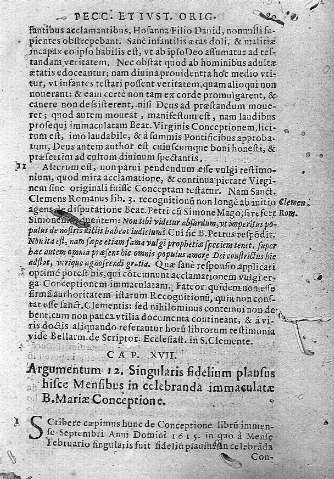 PECC. ET IVST. ORIG.
fantibus acclamantibus, Hosanna Filio Dauid, nonnulli sa-
pientes obstrepebant. Sanè infantilis ætas doli, & malitiæ
incapax eo ipso habilis est, vt ab ipso Deo assumatur ad res-
tandam veritatem. Nec obstat quod ab hominibus adultæ
ætatis edoceantur; nam diuina prouidentia hoc medio vti-
tur, vt infantes testari possent veritatem, quam alioqui non
nouerant: & eam certè non tam ex corde promulgarent, &
canere non desisterent, nisi Deus ad præstandum moue-
ret; quod autem moueat, manifestum est, nam laudibus
prosequi immaculatam Beat. Virginis Conceptionem, lici-
tum est, imò laudabile; & à summis Pontificibus approba-
tum, Deus autem author est cuiuscumque boni honesti, &
præsertim ad cultum diuinum spectantis.
11 Assertum est, non parui pendendum esse vulgi testimo-
nium, quod mira acclamatione, & continua pietate Virgi-
nem sine originali fuisse Conceptam testatur. Nam Sanct.
Clemens Romanus lib. 3. recognitionū non longè ab initio Clemen.
agens de disputatione Beat. Petri cū Simone Mago, sic refert Rom.
Simonem
Non tibi videtur absurdum, vt imperitus po-
pulus de nostris dictis habeat iudicium? Cui sic B. Petrus respōdit.
Non ita est, nam sæpe etiam fama vulgi prophetiæ speciem tenet, super
hæc autem omnia pro
stat hic omnis populus amore Dei constrictus
adstat, vtriusque agnoscendi gratia. Quæ sanè responsio applicari
opsimè potest his, qui cōtemnunt acclamationem vulgi er-
ga Conceptionem immaculatam. Fateor quidem non esse
firmā authoritatem istarum Recognitionū, quia non cons-
tat esse sanct. Clementis: sed nihilominus contemni non de-
bent, cum non pauca vtilia documenta contineant, & à vi-
ris doctis aliquando referantur horū librorum testimonia
vide Bellarm. de Scriptor. Ecclesiast. in S. Clemente.
CAP. XVII.
Argumentum 12. Singularis fidelium plausus
hisce Mensibus in celebranda immaculatæ
B. Mariæ Conceptione.
1 SCribere cœpimus hunc de Conceptione librū immen-
se Septembri Anni Domini 1615. in quo à Mense
Februario singularis fuit fideliū plausus in celebrāda
Con-